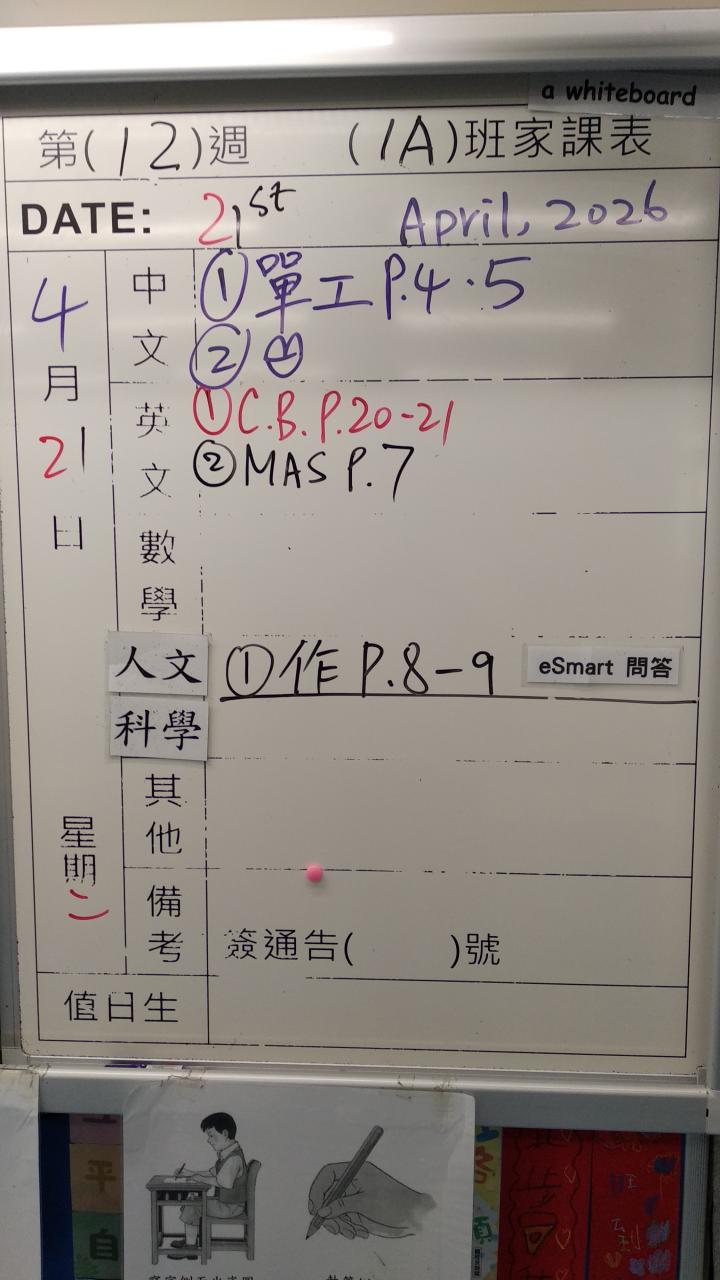 a whiteboard
第(12)週 (1A)班家課表
DATE: 21st April, 2026
4月21日
星期二
中文
①單工 P.4.5
②
英文
①C.B. P.20-21
②MAS P.7
數學
人文科學
①作 P.8-9 eSmart 問答
其他
備考
簽通告( )號
值日生
平
自